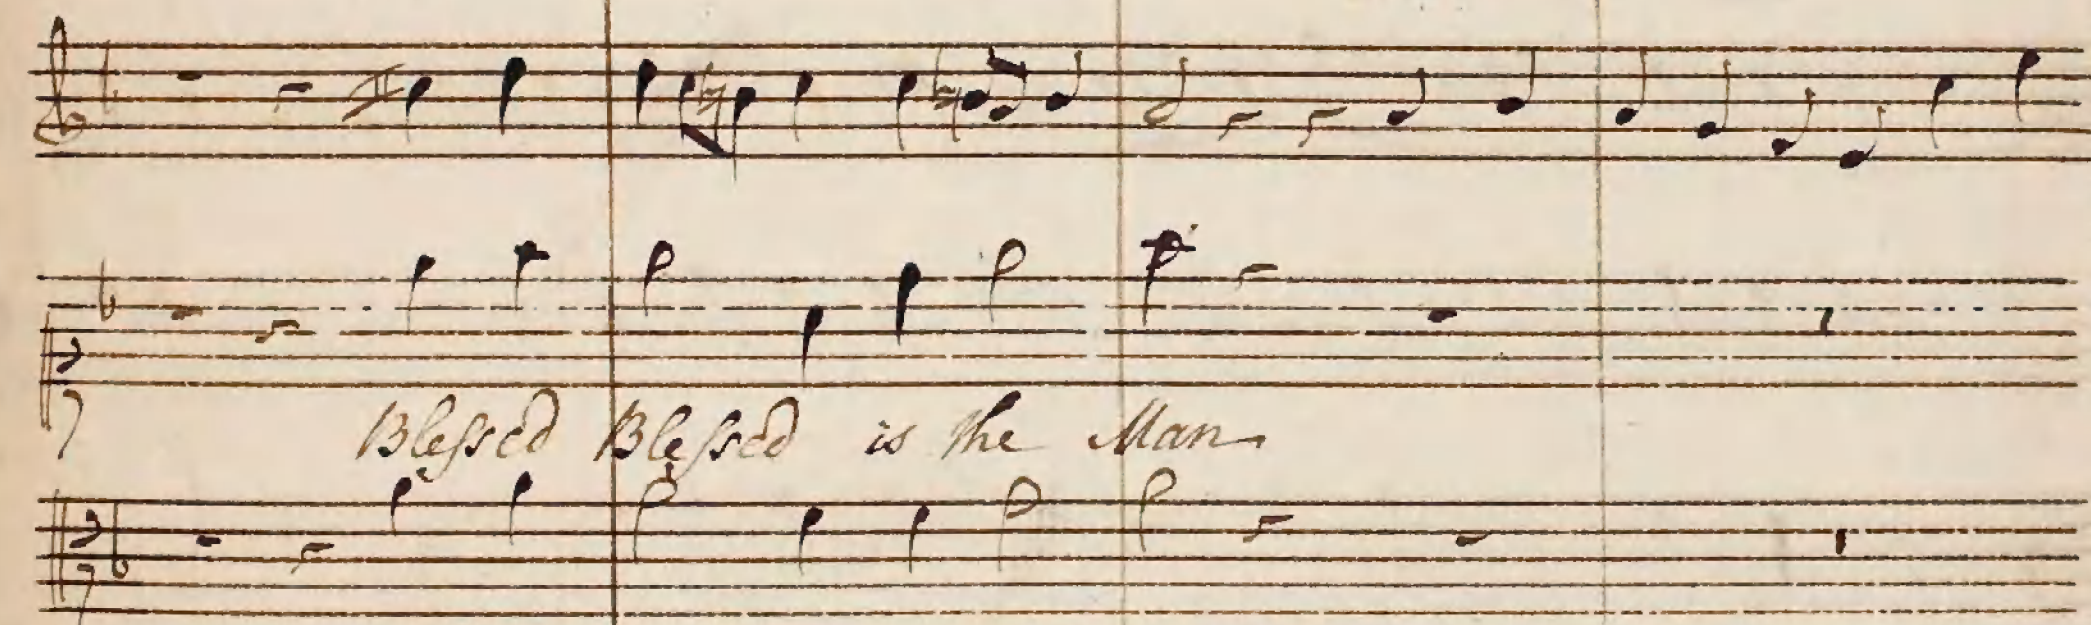 Bleſsed Bleſsed is the Man